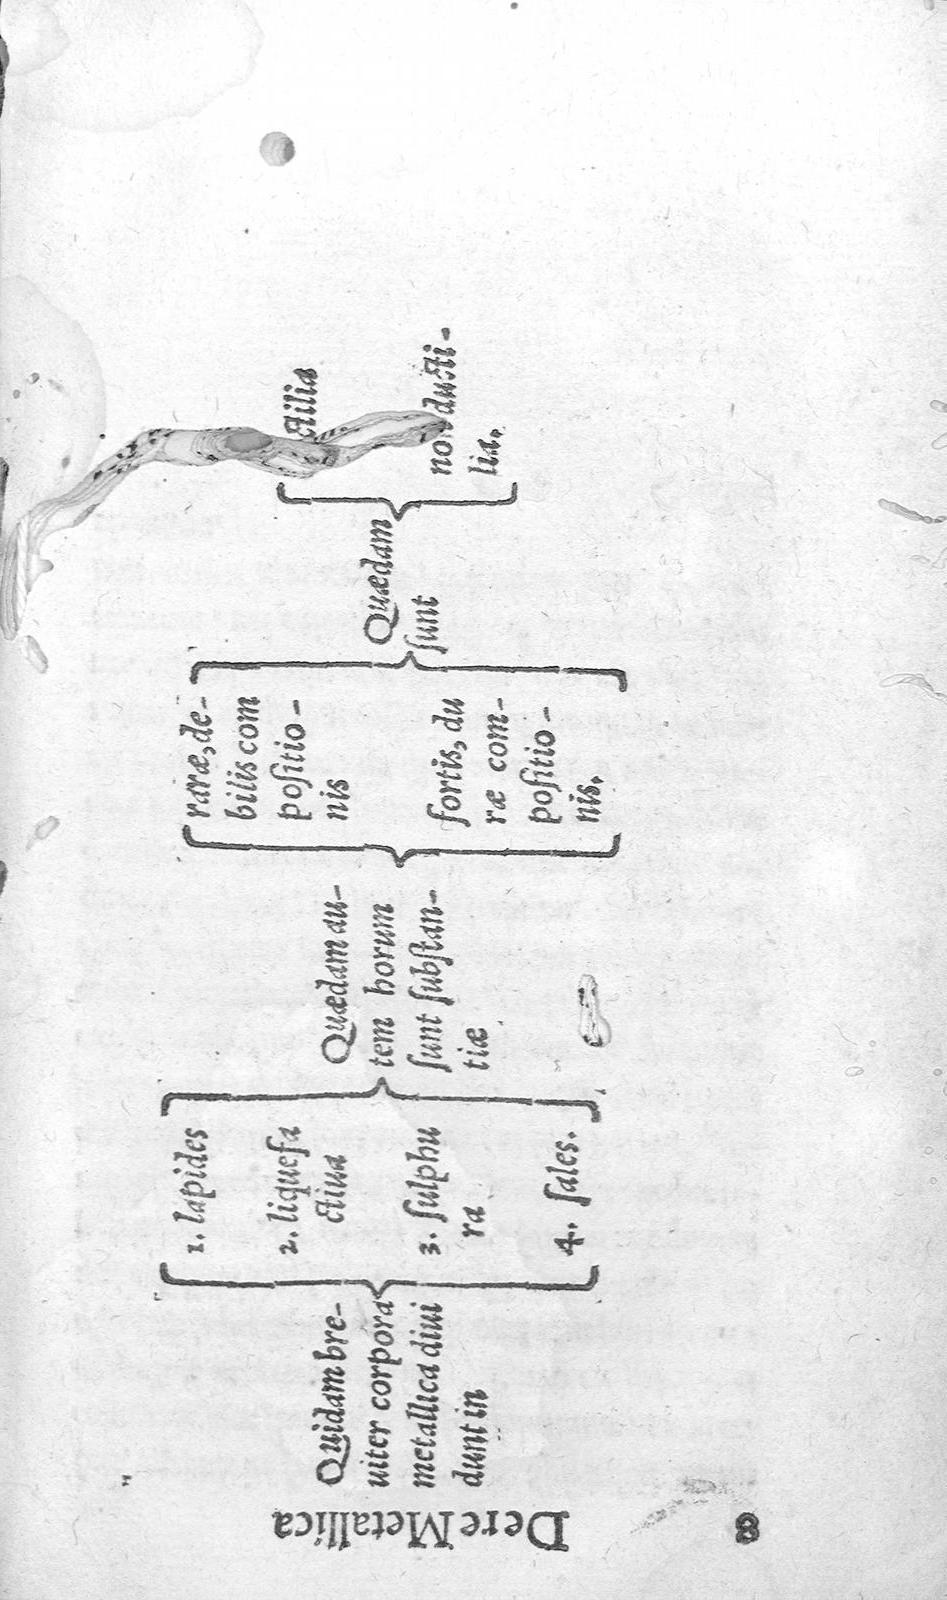 8
De re Metallica
Quidam bre-
uiter corpora
metallica diui
dunt in
1. lapides
2. liquefa
ctiua
3. ſulphu
ra
4. ſales.
Quædam au-
tem horum
ſunt ſubſtan-
tiæ
raræ, de-
bilis com
poſitio-
nis
fortis, du
ræ com-
poſitio-
nis.
Quædam
ſunt
ctilia
non ducti-
lia.